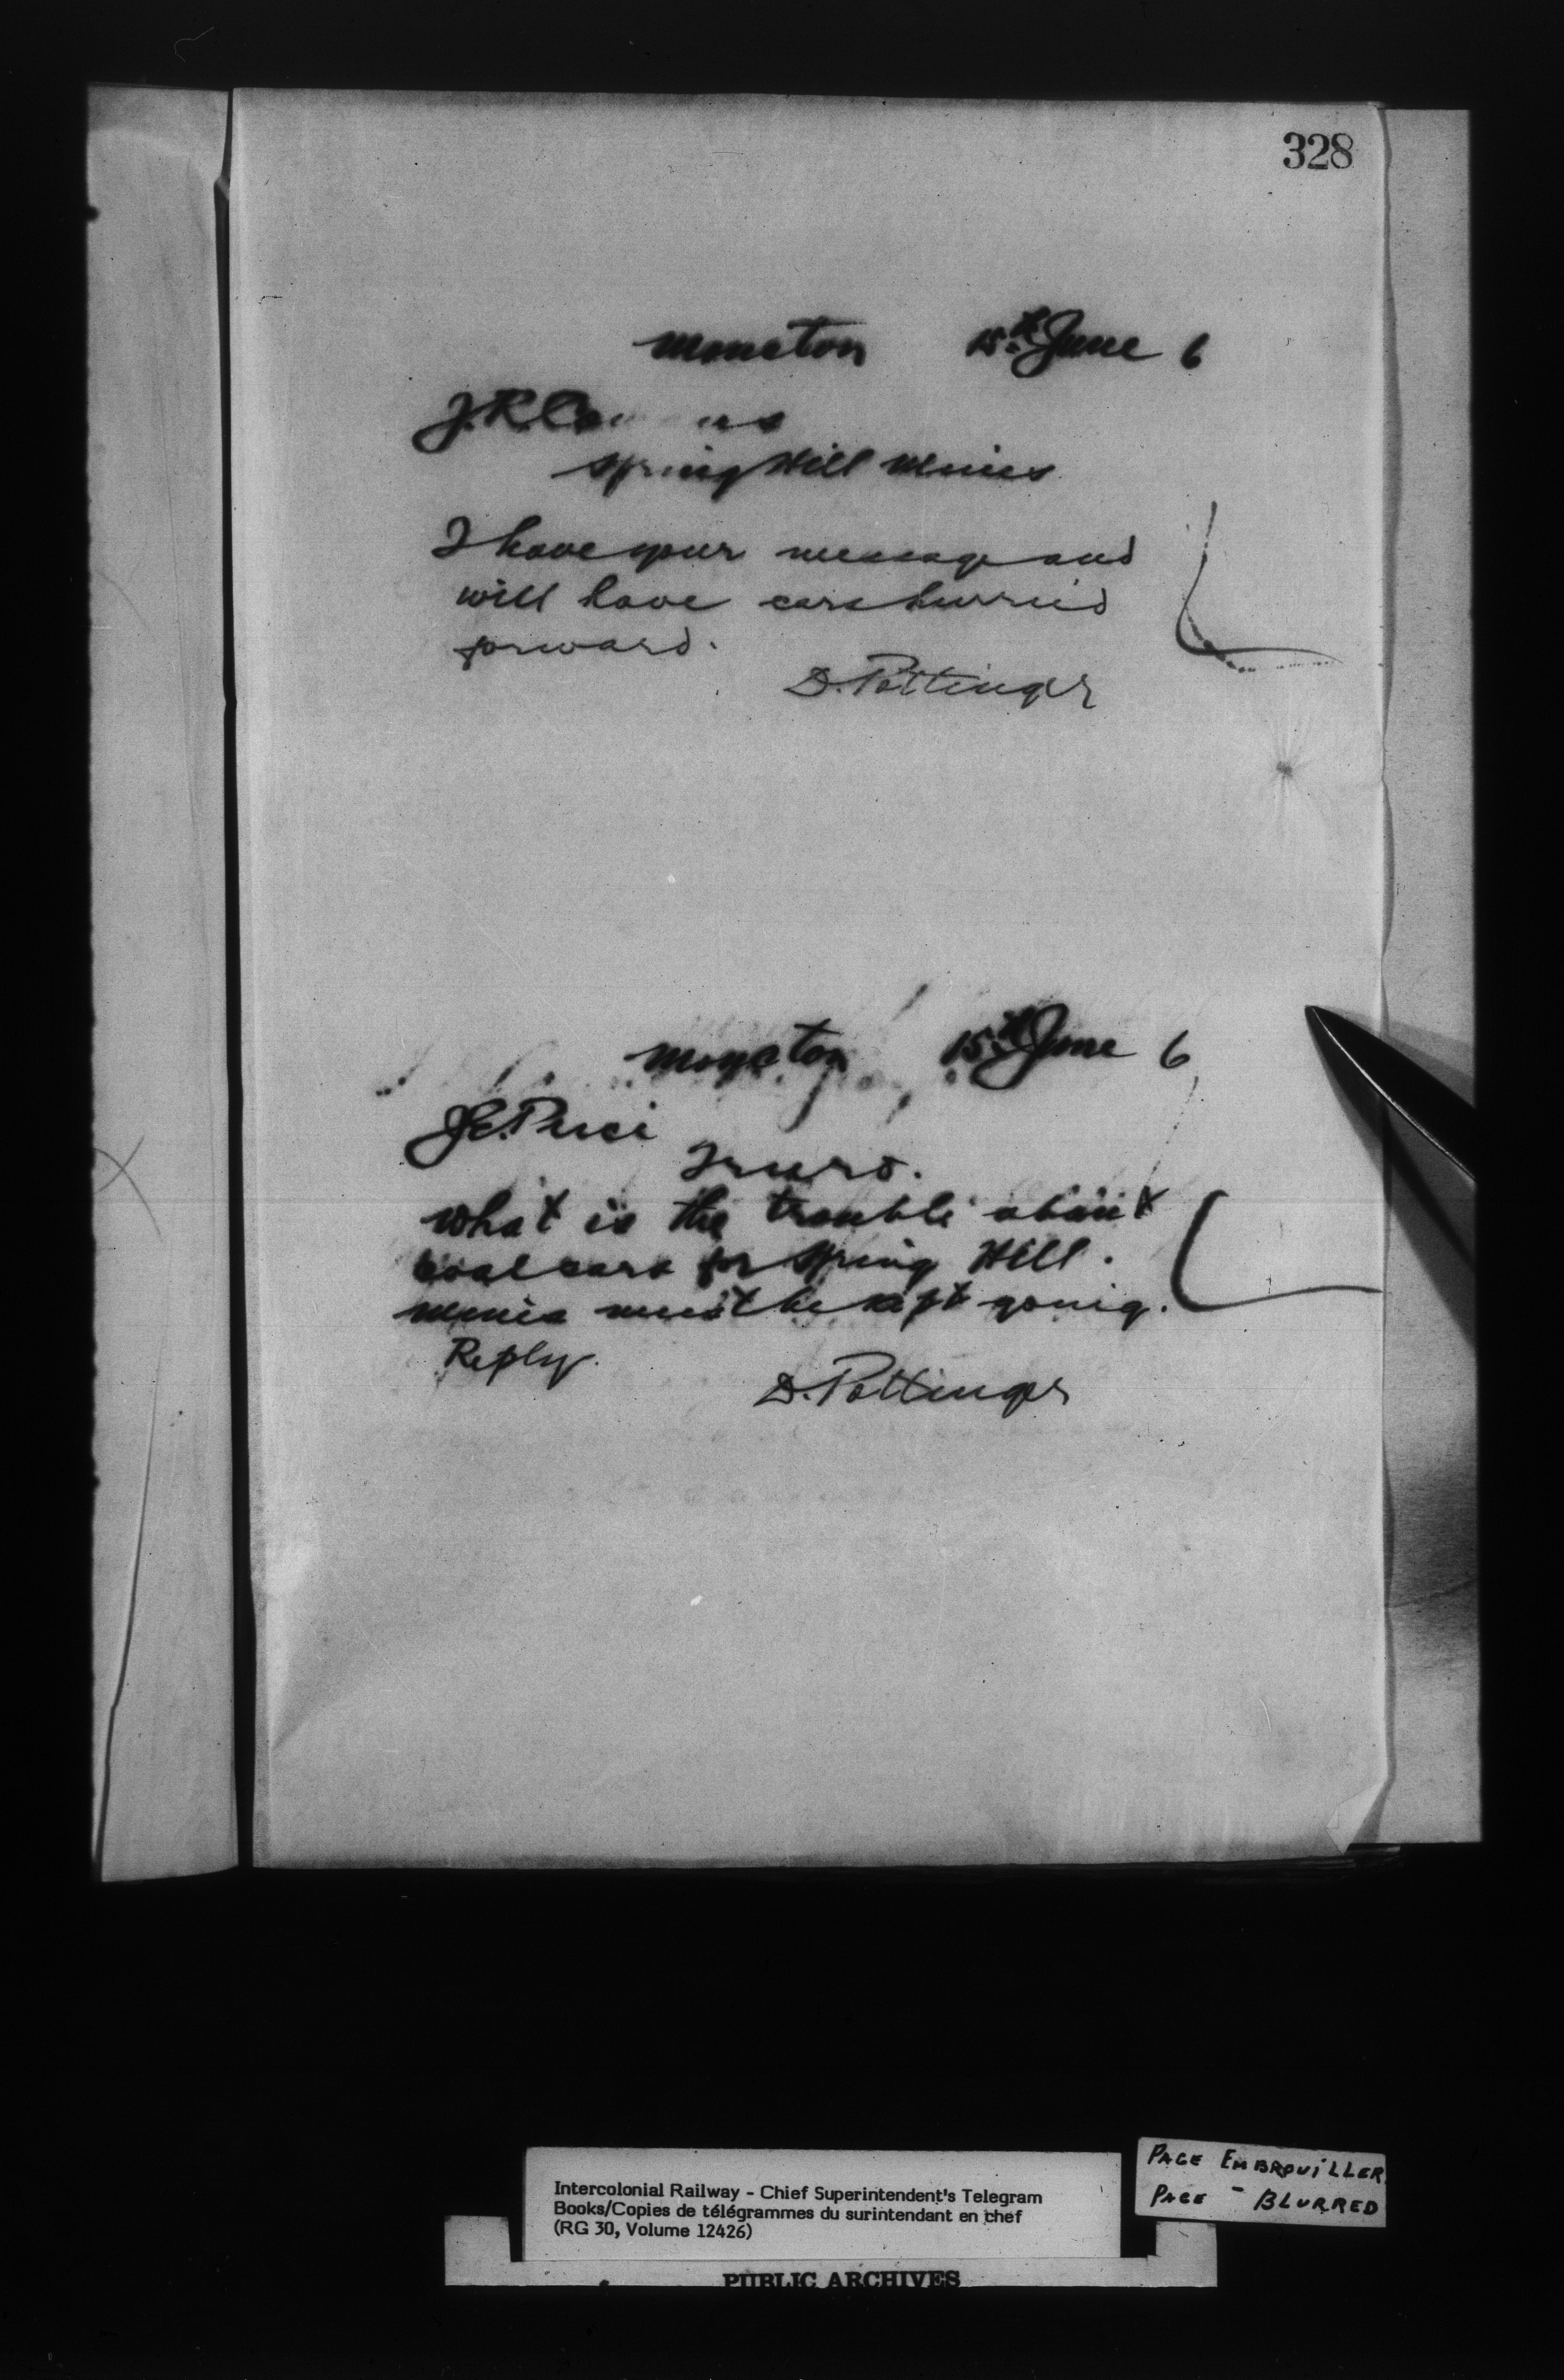 328
Moncton 15th June 6
J.R.
Spring Hill Mines
I have your message and
will have cars hurried
forward.
D. Pottinger
Moncton 15th June 6
Truro.
What is the trouble about
coal cars for Spring Hill.
Mines must be kept going.
Reply.
D. Pottinger
PAGE EMBROUILLER
PAGE - BLURRED
Intercolonial Railway - Chief Superintendent's Telegram
Books/Copies de télégrammes du surintendant en chef
(RG 30, Volume 12426)
PUBLIC ARCHIVES